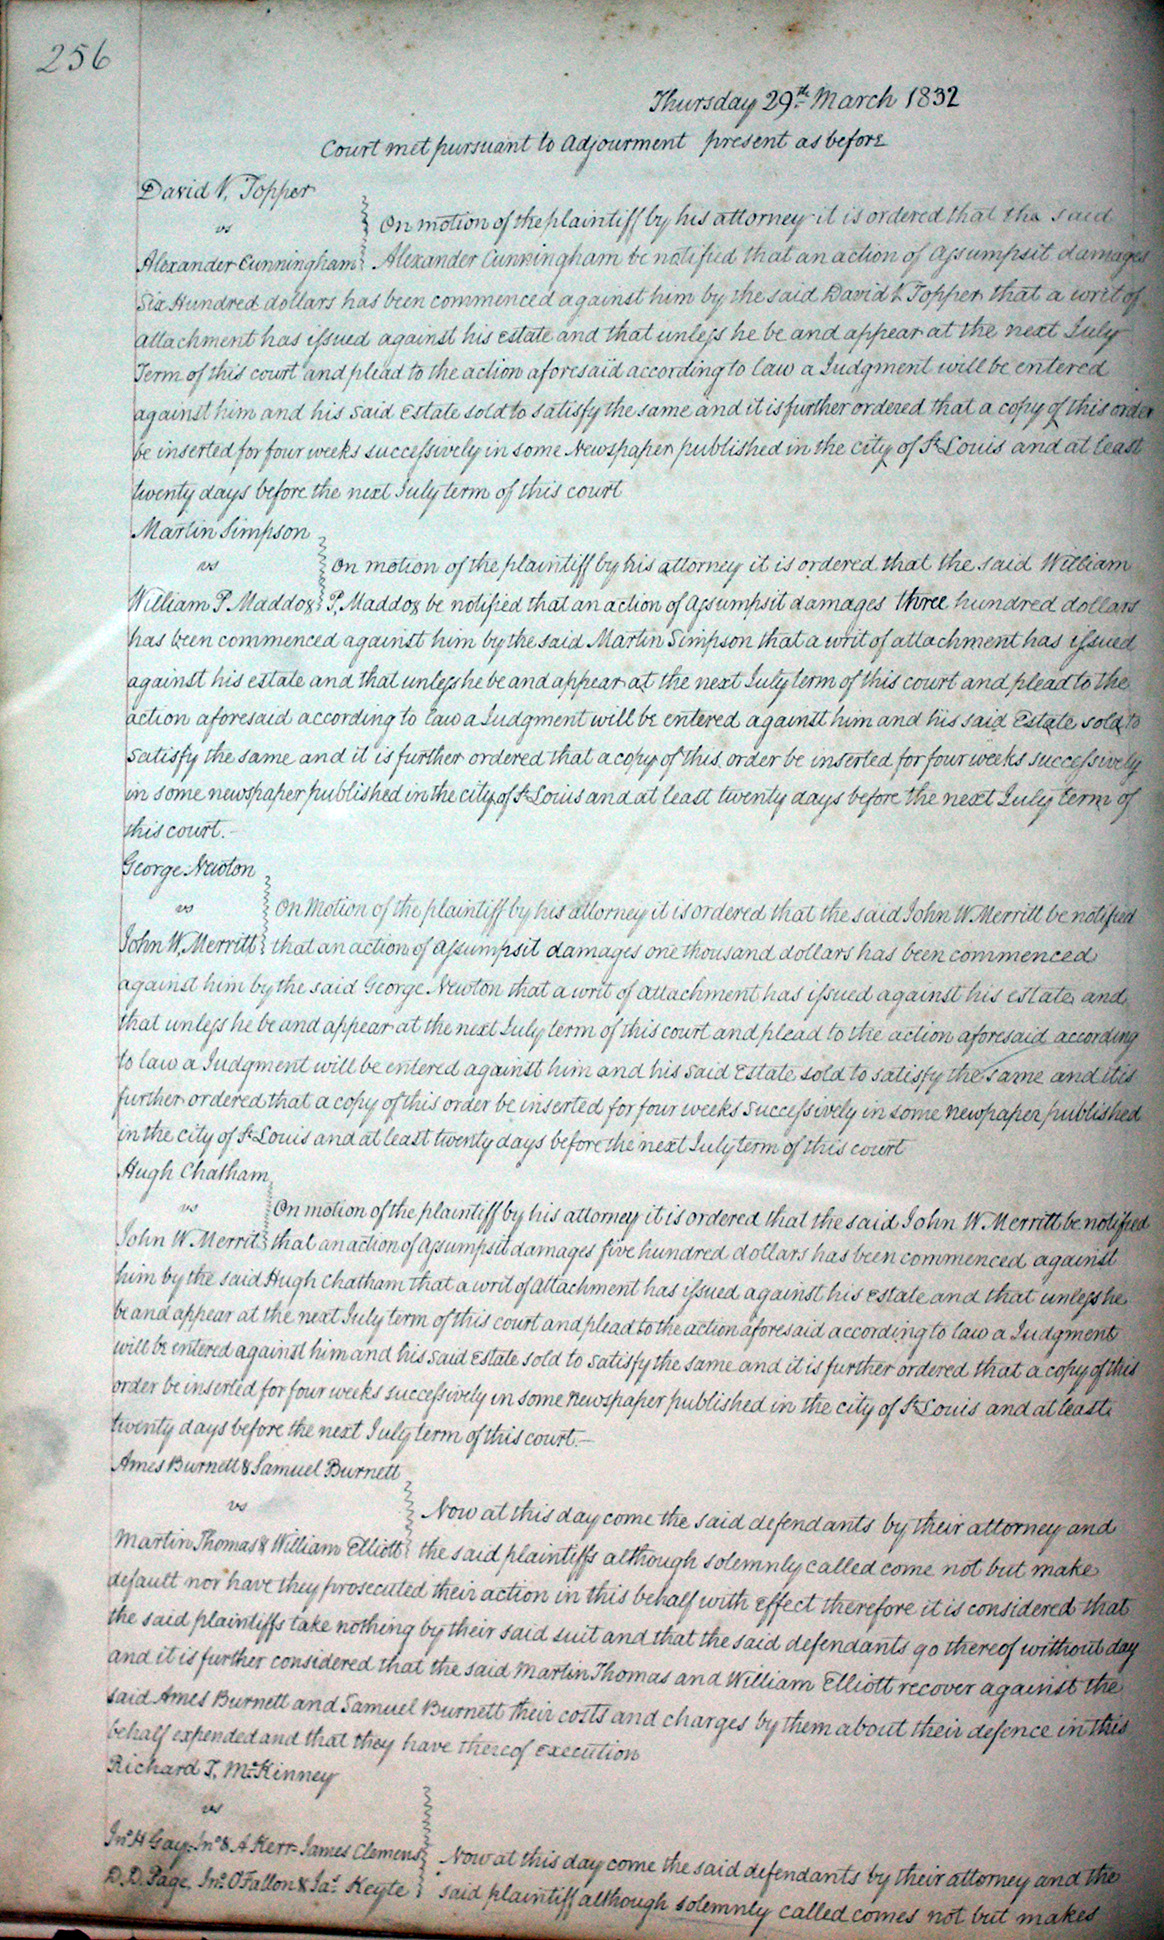 256
Thursday 29th March 1832
Court met pursuant to Adjourment present as before
David V. Topper
vs
On motion of the plaintiff by his attorney it is ordered that the said
Alexander Cunningham Alexander Cunningham be notified that an action of Assumpsit damages
Six Hundred dollars has been commenced against him by the said David V. Topper that a writ of
attachment has issued against his estate and that unless he be and appear at the next July
Term of this court and plead to the action aforesaid according to law a Judgment will be entered
against him and his said Estate sold to satisfy the same and it is further ordered that a copy of this order
be inserted for four weeks successively in some Newspaper published in the city of St Louis and at least
twenty days before the next July term of this court
Martin Simpson
vs
On motion of the plaintiff by his attorney it is ordered that the said William
William P. Maddox P. Maddox be notified that an action of Assumpsit damages three hundred dollars
has been commenced against him by the said Martin Simpson that a writ of attachment has issued
against his estate and that unless he be and appear at the next July term of this court and plead to the
action aforesaid according to law a Judgment will be entered against him and his said Estate sold to
satisfy the same and it is further ordered that a copy of this order be inserted for four weeks successively
in some newspaper published in the city of St Louis and at least twenty days before the next July term of
this court.
George Newton
vs
On Motion of the plaintiff by his attorney it is ordered that the said John W. Merritt be notified
John W. Merritt that an action of Assumpsit damages one thousand dollars has been commenced
against him by the said George Newton that a writ of attachment has issued against his estate and
that unless he be and appear at the next July term of this court and plead to the action aforesaid according
to law a Judgment will be entered against him and his said Estate sold to satisfy the same and it is
further ordered that a copy of this order be inserted for four weeks successively in some newpaper published
in the city of St Louis and at least twenty days before the next July term of this court
Hugh Chatham
vs
On motion of the plaintiff by his attorney it is ordered that the said John W. Merritt be notified
John W Merrit that an action of Assumpsit damages five hundred dollars has been commenced against
him by the said Hugh Chatham that a writ of attachment has issued against his estate and that unless he
be and appear at the next July term of this court and plead to the action aforesaid according to law a Judgment
will be entered against him and his said Estate sold to satisfy the same and it is further ordered that a copy of this
order be inserted for four weeks successively in some newspaper published in the city of St Louis and at least
twenty days before the next July term of this court.—
Ames Burnett & Samuel Burnett
vs
Now at this day come the said defendants by their attorney and
Martin Thomas & William Elliott the said plaintiffs although solemnly called come not but make
default nor have they prosecuted their action in this behalf with effect therefore it is considered that
the said plaintiffs take nothing by their said suit and that the said defendants go thereof without day
and it is further considered that the said Martin Thomas and William Elliott recover against the
said Ames Burnett and Samuel Burnett their costs and charges by them about their defence in this
behalf expended and that they have thereof execution
Richard T. McKinney
vs
Jno H Gay. Jno & A Kerr James Clemens Now at this day come the said defendants by their attorney and the
D. D. Page, Jno. O'Fallon & Jas. Keyte said plaintiff although solemnly called comes not but makes